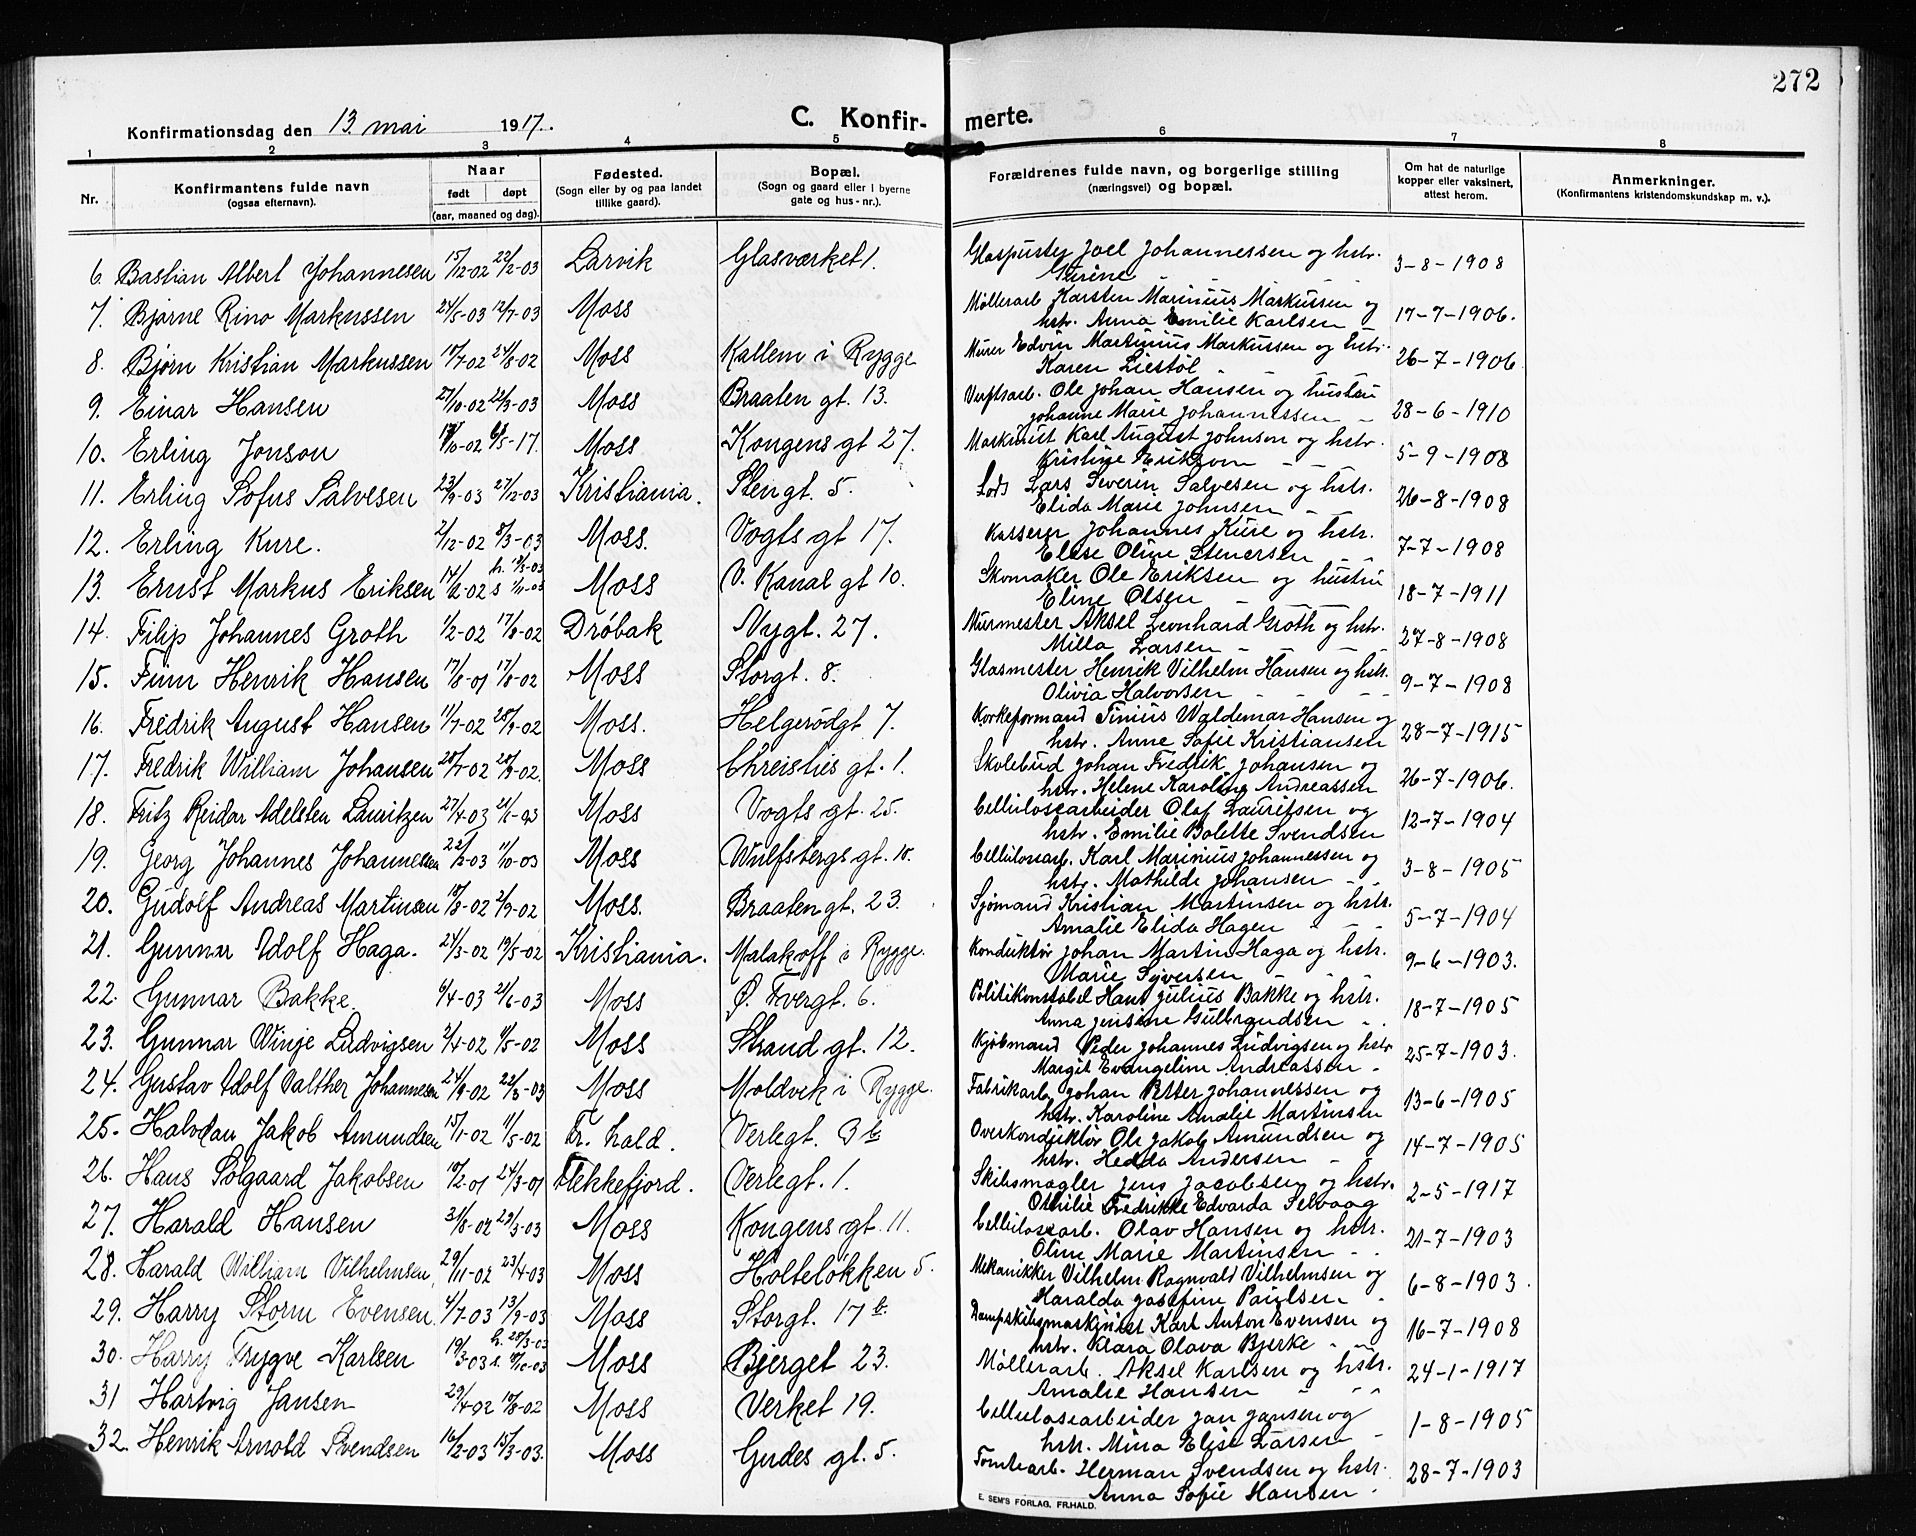 272
Konfirmationsdag den 13 mai 1917.
C. Konfir-
merte.
1 2 3 4 5 6 7 8
Nr.
Konfirmantens fulde navn
(ogsaa efternavn).
Naar
født døpt
(aar, maaned og dag).
Fødested.
(Sogn eller by og paa landet
tillike gaard).
Bopæl.
(Sogn og gaard eller i byerne
gate og hus-nr.).
Forældrenes fulde navn, og borgerlige stilling
(næringsvei) og bopæl.
Om hat de naturlige
kopper eller vaksinert,
attest herom.
Anmerkninger.
(Konfirmantens kristendomskundskap m. v.).
6. Bastian Albert Johannesen 15/12-02 22/2-03 Larvik Glasværket 1. Glaspuster Joel Johannessen og hstr. 3-8-1908
7. Bjarne Rino Markussen 24/5-03 12/7-03 Moss Møllerarb. Karsten Marinius Markussen og
hstr. Anna Emilie Karlsen 17-7-1906.
8. Bjørn Kristian Markussen 24/8-02 Moss Kallem i Rygge Murer Edvin Martinius Markussen og hstr.
Karen Liestøl 26-7-1906
9. Einar Hansen 27/10-02 22/3-03 Moss Braaten gt. 13. Verftsarb. Ole Johan Hansen og hustru
Johanne Marie Johannessen 28-6-1910
10. Erling Jonson 6/5-17. Moss Kongens gt 27. Maskinist Karl August Johnson og hstr.
Kristine Erikson 5-9-1908
11. Erling Sofus Salvesen 23/9-03 27/12-03 Kristiania. Sten gt. 5. Lods Lars Severin Salvesen og hstr.
Elida Marie Johnsen 26-8-1908
12. Erling Kure. 2/12-02 8/3-03 Moss. Vogts gt 17. Kasserer Johannes Kure og hstr.
Elise Oline Stenersen 7-7-1908
13. Ernst Markus Eriksen Moss V. Kanal gt 10. Skomaker Ole Eriksen og hustru
Eline Olsen 18-7-1911
14. Filip Johannes Groth 1/2-02 17/8-02 Drøbak Nygt. 27. Murmester Aksel Leonhard Groth og hstr.
Milla Larsen 27-8-1908
15. Finn Henrik Hansen 17/8-01 17/8-02 Moss Storgt. 8. Glasmester Henrik Vilhelm Hansen og hstr.
Olivia Halvorsen 9-7-1908
16. Fredrik August Hansen 11/7-02 28/9-02 Moss. Helgerødgt 7. Korkeformand Tinius Waldemar Hansen og
hstr. Anne Sofie Kristiansen 28-7-1915
17. Fredrik William Johansen Moss Chreisties gt. 1. Skolebud Johan Fredrik Johansen og
hstr. Helene Karoline Andreassen 26-7-1906.
18. Fritz Reidar Adelsten Lauritzen 27/4-03 Moss Vogts gt. 25. Celluloscarbeider Olaf Lauritsen og
hstr. Emilie Bolette Svendsen 12-7-1904
19. Georg Johannes Johannessen 11/10-03 Moss Wulfsbergs gt. 10. Cellulosearb. Karl Marinius Johannessen og
hstr. Mathilde Johansen 3-8-1905
20. Gudolf Andreas Martinsen 2/9-02 Moss. Braaten gt. 23. Sjømand Kristian Martinsen og hstr.
Amalie Elida Hagen 5-7-1904
21. Gunnar Adolf Haga. 24/3-02 19/5-02 Kristiania. Malakoff i Rygge. Konduktør Johan Martin Haga og hstr.
Marie Syversen 9-6-1903.
22. Gunnar Bakke. 6/4-03 21/6-03 Moss Ø. Tvergt. 6. Politikonstabel Hans Julius Bakke og hstr.
Anna Jensine Gulbrandsen 18-7-1905
23. Gunnar Winje Ludvigsen 2/4-02 Moss Strand gt. 12. Kjøbmand Peder Johannes Ludvigsen og hstr
Margit Evangeline Andreassen 25-7-1903.
24. Gustav Adolf Valther Johannesen 24/9-02 22/3-03 Moss Moldvek i Rygge. Fabrikarb. Johan Petter Johannessen og
hstr. Karoline Amalie Martinsen 13-6-1905
25. Halvdan Jakob Amundsen 15/1-02 11/5-02 Fr. hald. Verlegt. 3 b Overkonduktør Ole Jakob Amundsen og
hstr. Hedda Andersen 14-7-1905
26. Hans Solgaard Jakobsen 10/2-01 24/3-01 Flekkefjord. Verlegt. 1. Skibsmægler Jens Jacobsen og hstr.
Othilie Fredrikke Edvarda Selvaag 2-5-1917
27. Harald Hansen 31/8-02 29/3-03 Moss Kongens gt. 11. Cellulosearb. Olav Hansen og hstr.
Oline Marie Martinsen 21-7-1903
28. Harald William Vilhelmsen. 29/11-02 23/4-03 Moss Holteløkken 5. Mekanikker Vilhelm Ragnvald Vilhelmsen og
Haralda Josefine Paulsen 6-8-1903.
29. Harry Storm Evensen. 4/7-03 13/9-03 Moss Storgt. 17 b. Dampskibsmaskinist Karl Anton Evensen og
hstr. Klara Olava Bjerke 16-7-1908
30. Harry Trygve Karlsen 19/3-03 h. 28/3-03 Moss Bjerget 23. Møllerarb. Aksel Karlsen og hstr.
Amalie Hansen 24-1-1917
31 Hartvig Jansen 29/4-02 10/8-02 Moss Verket 19. Cellulosearbeider Jan Jansen og
hstr. Mina Elise Larsen 1-8-1905
32. Henrik Arnold Svendsen 16/2-03 15/3-03. Moss Gudes gt. 5. Tomtearb. Herman Svendsen og hstr.
Anna Sofie Hansen 28-7-1903
E. SEM'S FORLAG, FR.HALD.